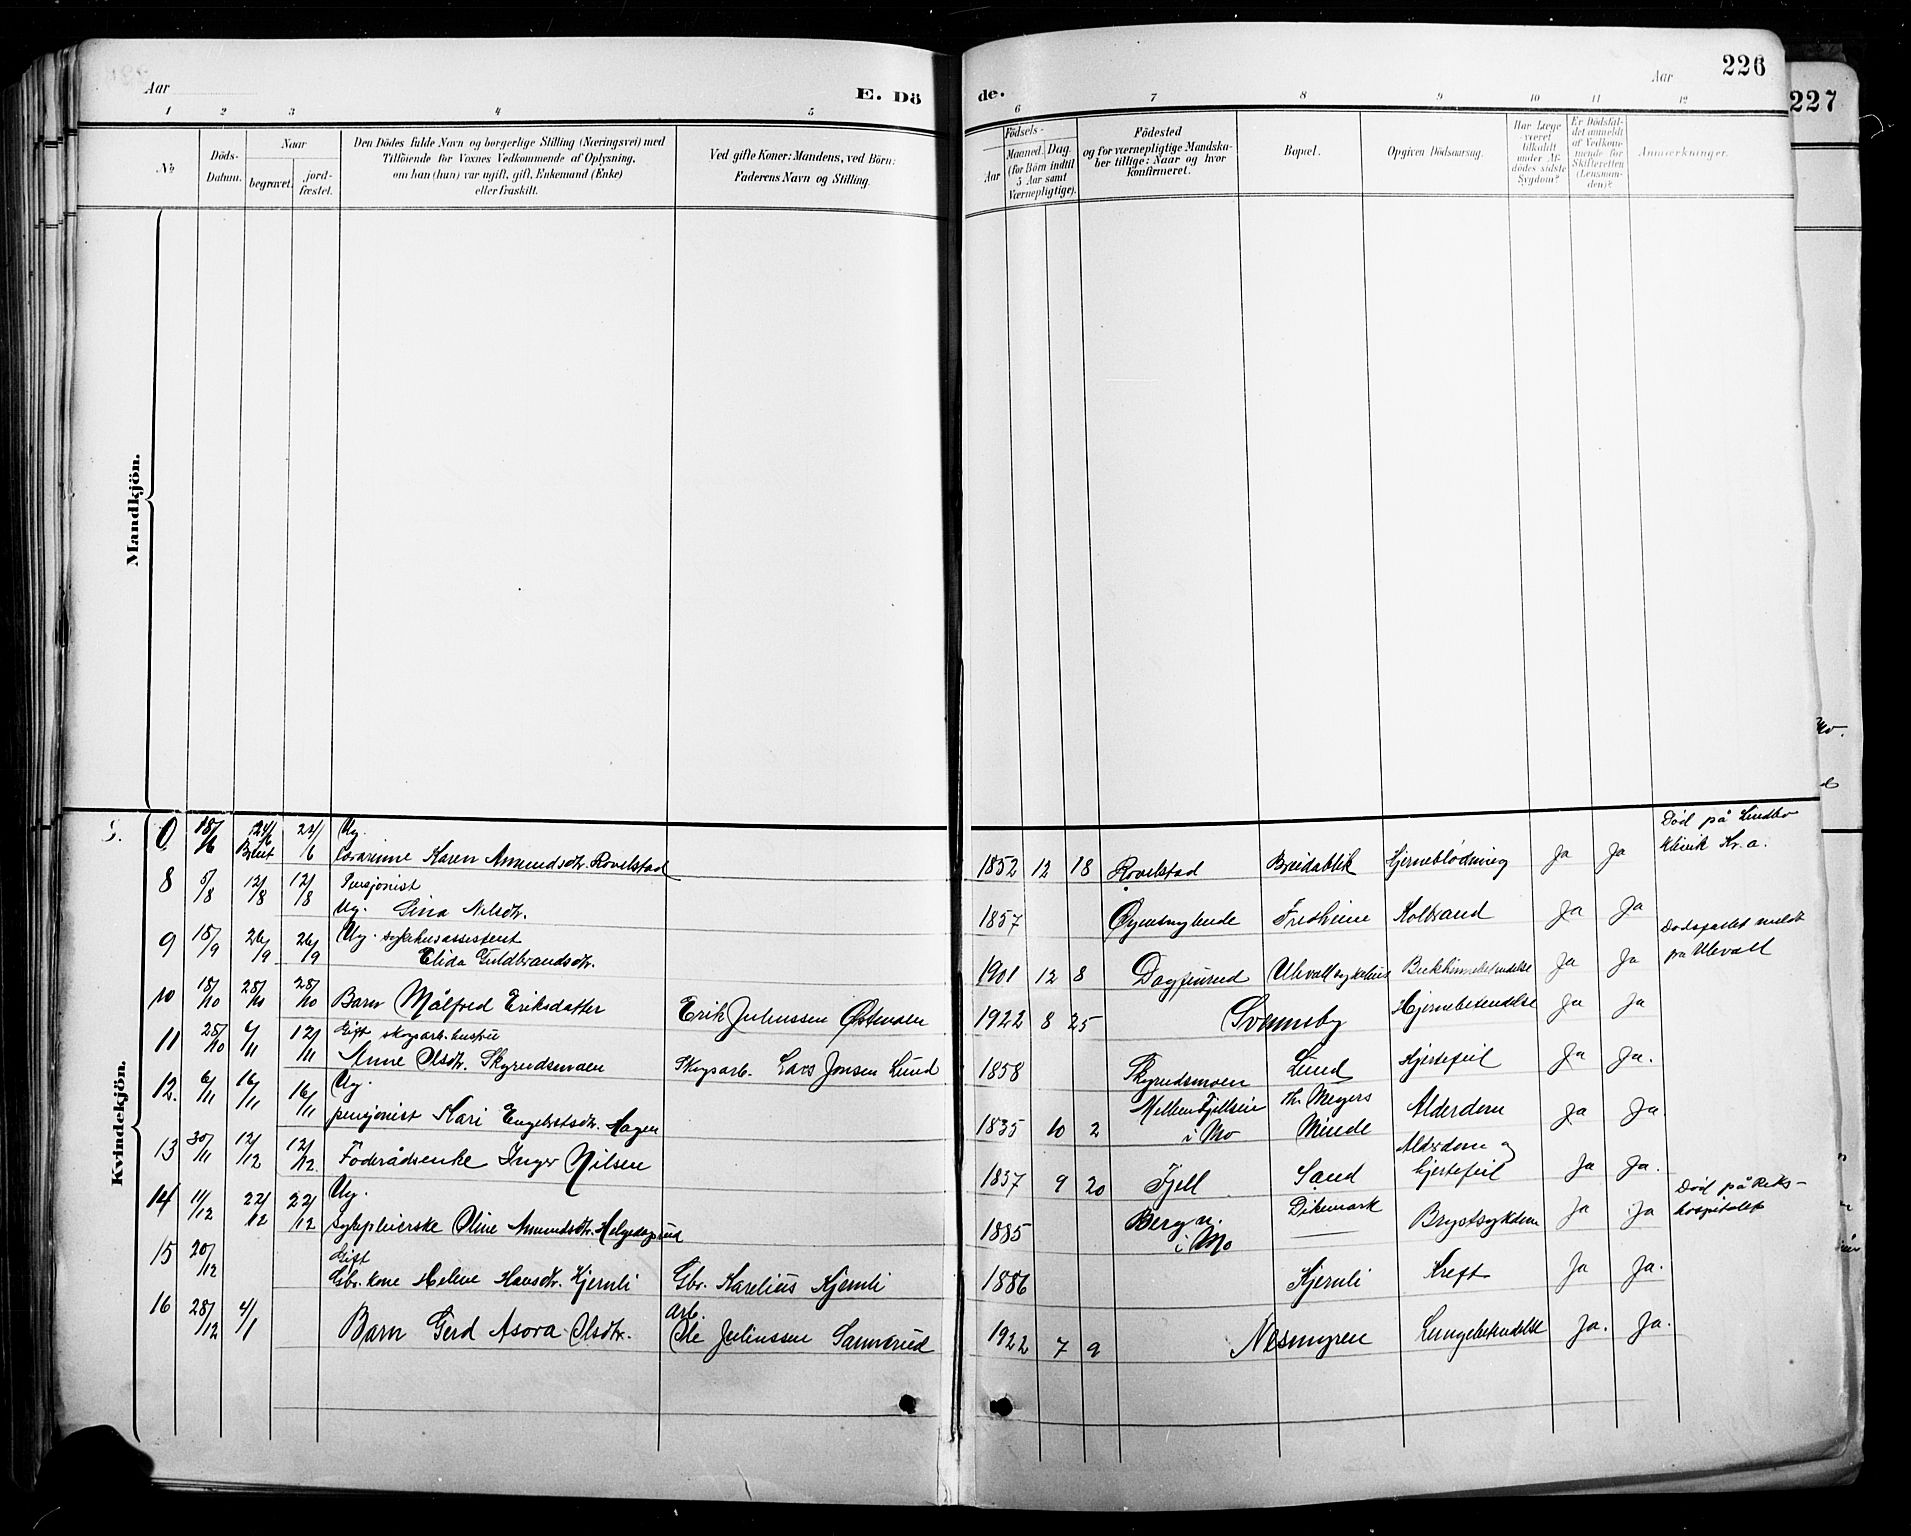 Aar
E. Dö
de.
Aar
226
227
1 2 3 4 5 6 7 8 9 10 11 12
No
Döds-
Datum.
Naar
begravet.
jord-
fæstet.
Den Dödes fulde Navn og borgerlige Stilling (Næringsvei) med
Tilföiende for Voxnes Vedkommende af Oplysning,
om han (hun) var ugift, gift, Enkemand (Enke)
eller fraskilt.
Ved gifte Koner: Mandens, ved Börn:
Faderens Navn og Stilling.
Födsels-
Aar
Maaned. Dag.
(for Börn indtil
5 Aar samt
Værnepligtige).
Födested
og for værnepligtige Mandska-
ber tillige: Naar og hvor
konfirmeret.
Bopæl.
Opgiven Dödsaarsag.
Har Læge
været
tilkaldt
under Af-
dödes sidste
Sygdom?
Er Dödsfal-
det anmeldt
af Vedkom-
mende for
Skifteretten
(Lensman-
den)?
Anmærkninger.
Mandkjön.
Kvindekjön.
18/6 24/6 Ug.
Lærarinne Karen Amundsdtr. Rovelstad 1852 12 18 Rovelstad Breidablik Hjerneblödning Ja Ja Död på
Klinik Kr.a.
8 5/8 12/8 12/8 Pensjonist
Ug. Lina Nilsdtr. 1857 Fredheim Kolbrand Ja Ja
9 18/9 26/9 26/9 Ug. sykehusassistent
Elida Guldbrandsdtr. 1901 12 8 Ja Ja Dødsfallet meldt
fra Ulevall
10 18/10 28/10 28/10 Barn Målfred Eriksdatter Erik Juliussen Østmoen 1922 8 25 Svennsby Hjernebetendelse Ja Ja
11 28/10 6/11 12/11 Gift skogsarb. hustru
Anne Olsdtr. Skyrudsmoen Skogsarb. Lars Jonsen Lund 1858 Skyrudsmoen Lund Hjertefeil Ja Ja.
12. 6/11 16/11 16/11 Ug.
pensjonist Kari Engebretsdtr. Hagen 1835 10 2 i Mo Th. Meyers Minde Alderdom Ja Ja.
13 30/11 12/12 12/12 Föderådsenke Inger Nilsen 1837 9 20 Fjell Sand Alderdom og
hjertefeil Ja Ja.
14 14/12 22/12 22/12 Ug.
sykepleierske Oline Amundsdtr. Helgedagsrud 1885 Berg n. i Mo Dikemark Brystsykdom Ja Ja Död på Riks-
hospitalet
15 20/12 Gift
Gbr. kone Helene Hansdtr. Kjernli Gbr. Karelius Kjernli 1886 Kjernli Kreft Ja Ja.
16 28/12 4/1 Barn Gerd Asora Olsdtr. Arb.
Ole Juliussen Sannerud 1922 7 9 Nesmyren Lungebetendelse Ja. Ja.